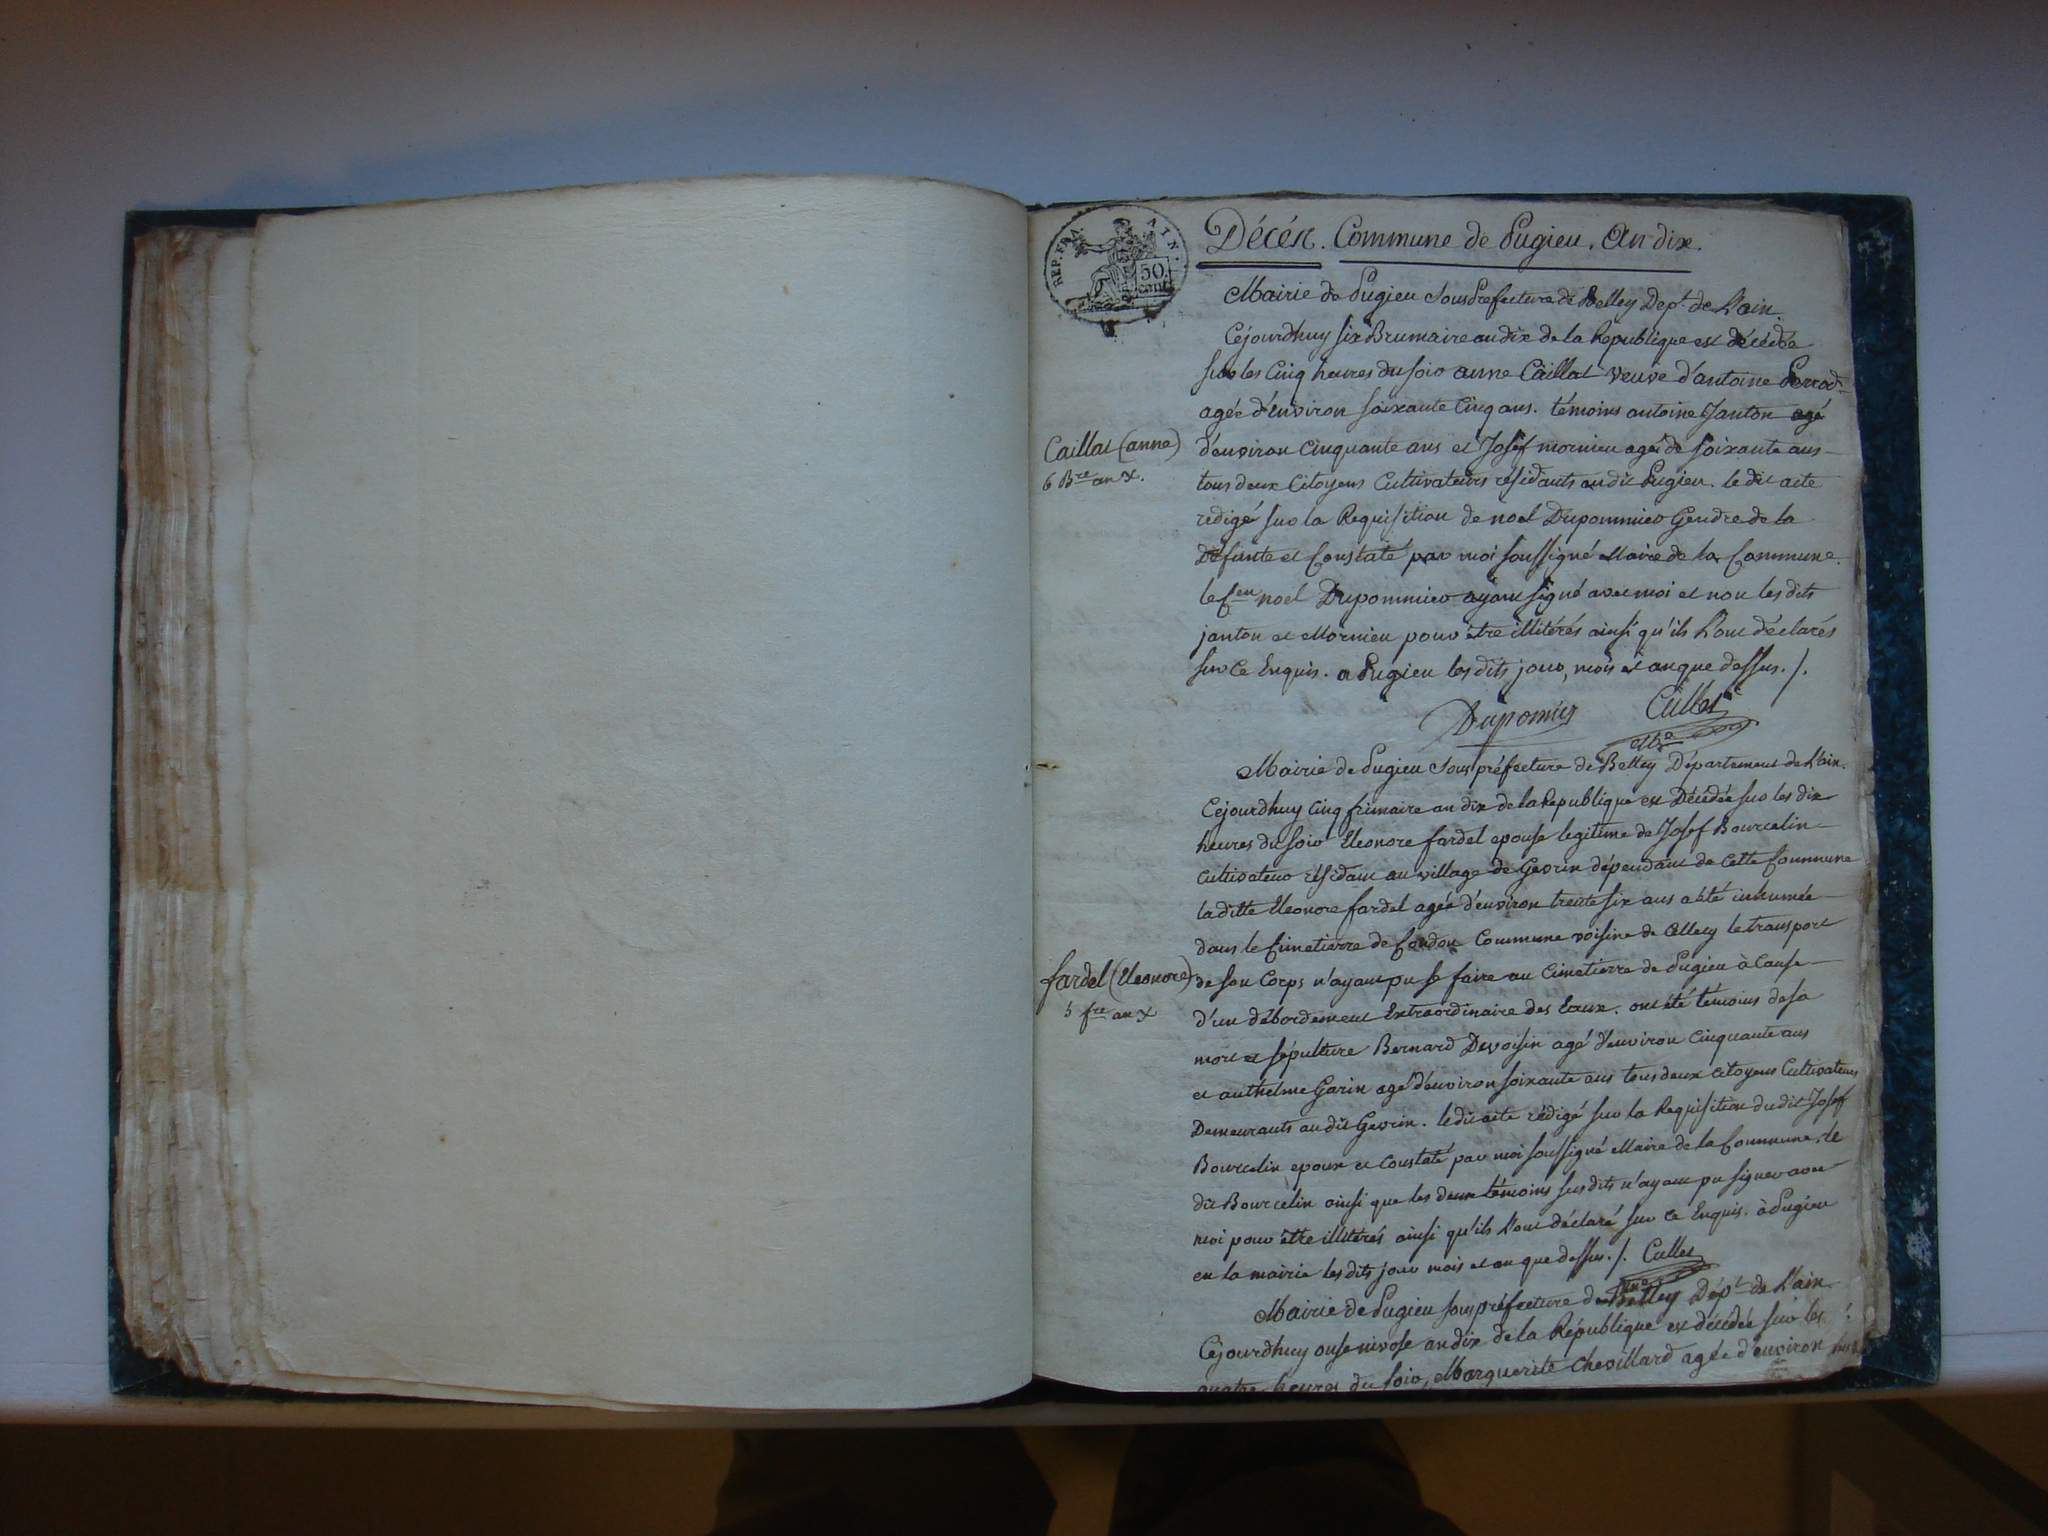 REP. FRA. AIN.
50 cent.
Décès. Commune de Pugieu. An dix.
Mairie de Pugieu Sous Prefecture de Belley Dept. de L'ain.
Cejourdhuy six Brumaire an dix de la Republique est décédée
sur les Cinq heures du soir anne Caillat veuve d'antoine Perrod
agée d'environ soixante Cinq ans. témoins antoine Janton agé
Caillat (anne)
6 Bre an X.
d'environ cinquante ans et Josef mornieu agé de soixante ans
tous deux Citoyens Cultivateurs résidants au dit Pugieu. le dit acte
redigé sur la Requisition de noel Dupommier Gendre de la
Défunte et Constaté par moi soussigné Maire de la Commune.
le Cen noel Dupommier ayant signé avec moi et non les dits
janton et Mornieu pour être illitérés ainsi qu'ils l'ont déclarés
sur Ce Enquis. a Pugieu les dits jour, mois et an que dessus. /.
Dupomier Cullet
Mre
Mairie de Pugieu Sous préfecture de Belley Département de L'ain.
Cejourdhuy cinq frimaire an dix de la Republique est Décédée sur les dix
heures du soir Eleonore fardel epouse legitime de Josef Bourcelin
cultivateur résidant au village de Gevrin dépendant de cette Commune
la ditte Eleonore fardel agée d'environ trente six ans a été inhumée
dans le Cimetierre de Condon Commune voisine de le transport
fardel (Eleonore)
5 fre an X
de son Corps n'ayant pu se faire au Cimetierre de Pugieu à Cause
d'un débordement Extraordinaire des Eaux. ont été témoins de sa
mort et sépulture Bernard Devoisin agé d'environ cinquante ans
et anthelme Garin agé d'environ soixante ans tous deux citoyens Cultivateurs
Demeurants au dit Gevrin. le dit acte rédigé sur la Requisition du dit Josef
Bourcelin epoux et Constaté par moi soussigné Maire de la Commune. le
dit Bourcelin ainsi que les deux témoins susdits n'ayant pu signer avec
moi pour être illitérés ainsi qu'ils l'ont déclaré sur ce Enquis. à Pugieu
en la mairie les dits jour mois et an que dessus. /. Cullet
Mre
Mairie de Pugieu sous préfecture de Belley Dépt de L'ain
Cejourdhuy onse nivose an dix de la République est décédée sur les
quatre heures du soir, Marguerite Chevillard agée d'environ